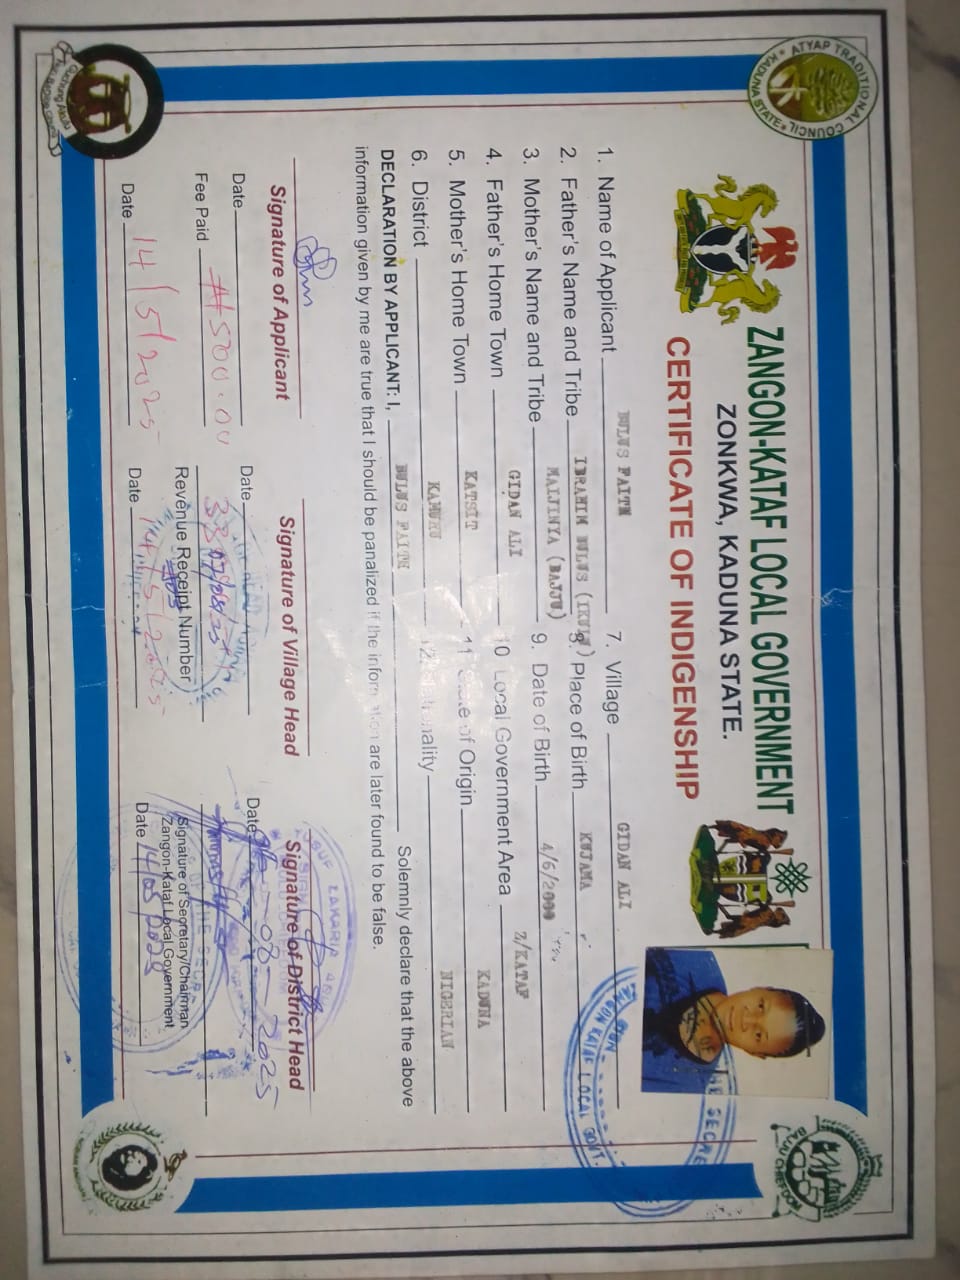 ZANGON-KATAF LOCAL GOVERNMENT
ZONKWA, KADUNA STATE.
CERTIFICATE OF INDIGENSHIP
ATYAP TRADITIONAL COUNCIL
KADUNA STATE.
BAJJU CHIEFDOM
1. Name of Applicant BULUS FAITH
2. Father's Name and Tribe IBRAHIM BULUS (IKULU)
3. Mother's Name and Tribe MAIJINYA (BAJJU)
4. Father's Home Town GIDAN ALI
5. Mother's Home Town KATSIT
6. District KAMURU
7. Village GIDAN ALI
8. Place of Birth KUJAMA
9. Date of Birth 4/6/2000
10 Local Government Area Z/KATAF
11 State of Origin KADUNA
12. Nationality NIGERIAN
DECLARATION BY APPLICANT: I, BULUS FAITH Solemnly declare that the above
information given by me are true that I should be panalized if the information are later found to be false.
Signature of Applicant
Signature of Village Head
Signature of District Head
Date
Date 07/08/25
Date 08-2025
Fee Paid ₦500.00
Revenue Receipt Number
Signature of Secretary/Chairman
Zangon-Kataf Local Government
Date 14/5/2025
Date 14/5/2025
Date 14/05/2025
KATAF LOCAL GOVT.